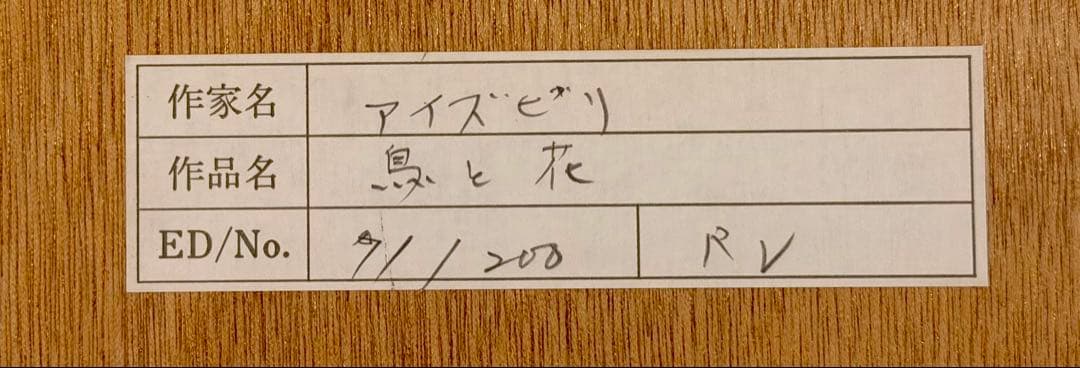 作家名 アイズピリ
作品名 鳥と花
ED/No. 71/200 RV